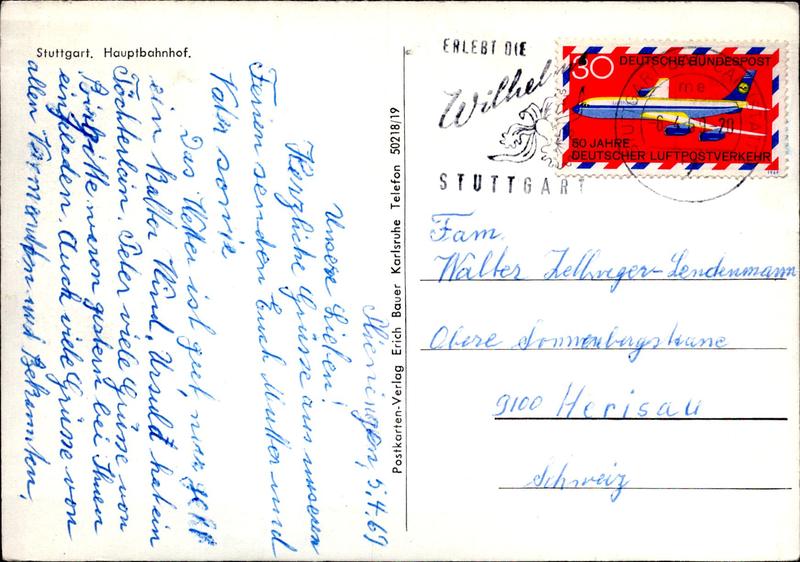 Stuttgart, Hauptbahnhof.
Plieningen, 5.4.69
Unsere Lieben!
Herzliche Grüsse aus unseren
Ferien senden Euch Mutter und
Vater sowie
Das Wetter ist gut, nur geht
ein kalter Wind, Ursula hat ein
Töchterlein, Peter viele Grüsse von
Brigitte waren gestern bei Ihnen
eingeladen. Auch viele Grüsse von
allen Verwandten und Bekannten.
Postkarten-Verlag Erich Bauer Karlsruhe Telefon 50218/19
ERLEBT DIE
Wilhelm
STUTTGART
30 DEUTSCHE BUNDESPOST
50 JAHRE
DEUTSCHER LUFTPOSTVERKEHR
1969
Fam.
Walter Zellweger-Lendenmann
Obere Sonnenbergstrasse
9100 Herisau
Schweiz